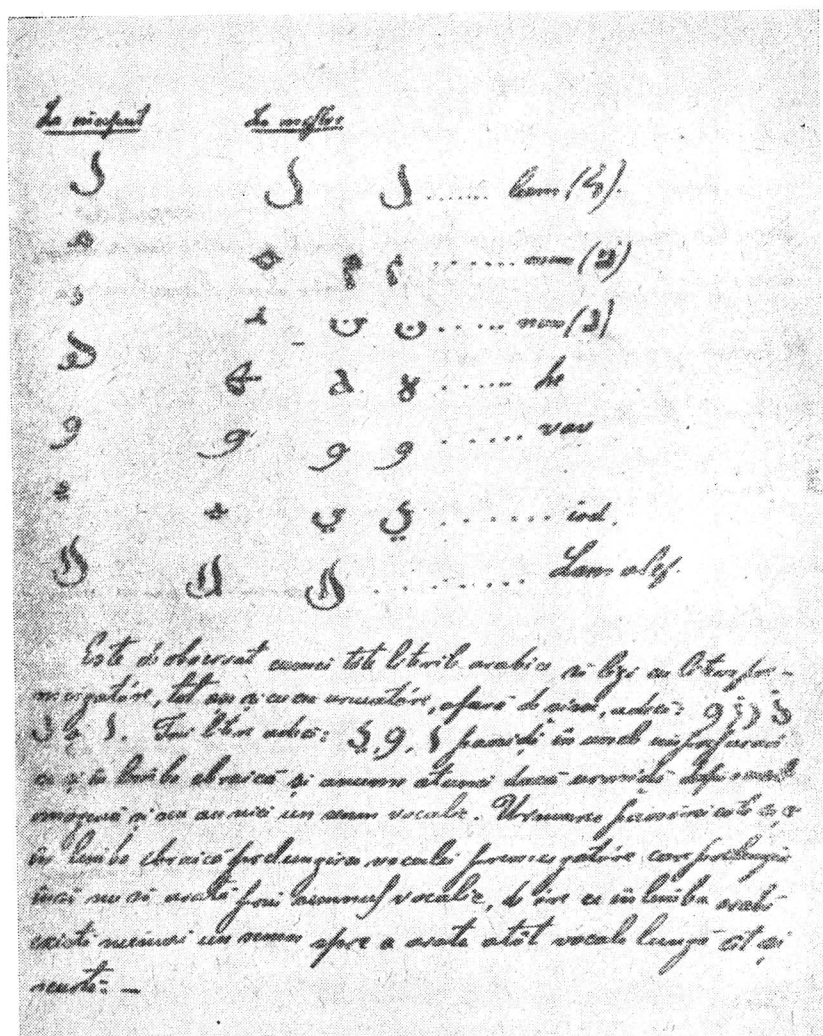 La început La mijloc
ل ل ل ...... lam (ל).
م م م م ...... mem (מ)
ن ن ن ن ..... nun (נ)
ه ه ه ه ..... he
و و و و ...... vav
ي ي ي ي ....... iod.
لا لا لا ......... Lam alef.
Este de observat cumcă tóte literile arabice se légă cu litera pre-
mergatóre, tot aşa şi cu cea urmatóre, afară de şése, adecă: و ز ر ذ
د ا. Trei litere adecă: ي, و, ا
ca şi în limba ebraică şi anume atunci dacă urmeză după vocal
omogenă şi nu au nici un semn vocalic. Urmarea e ca
în limba ebraică prelungirea vocalei premergatóre, care prelungire
încă nu se arată prin semnul vocalic, de óre ce în limba arabă
există numai un semn spre a arata atât vocala lungă cât şi
scurtă: —